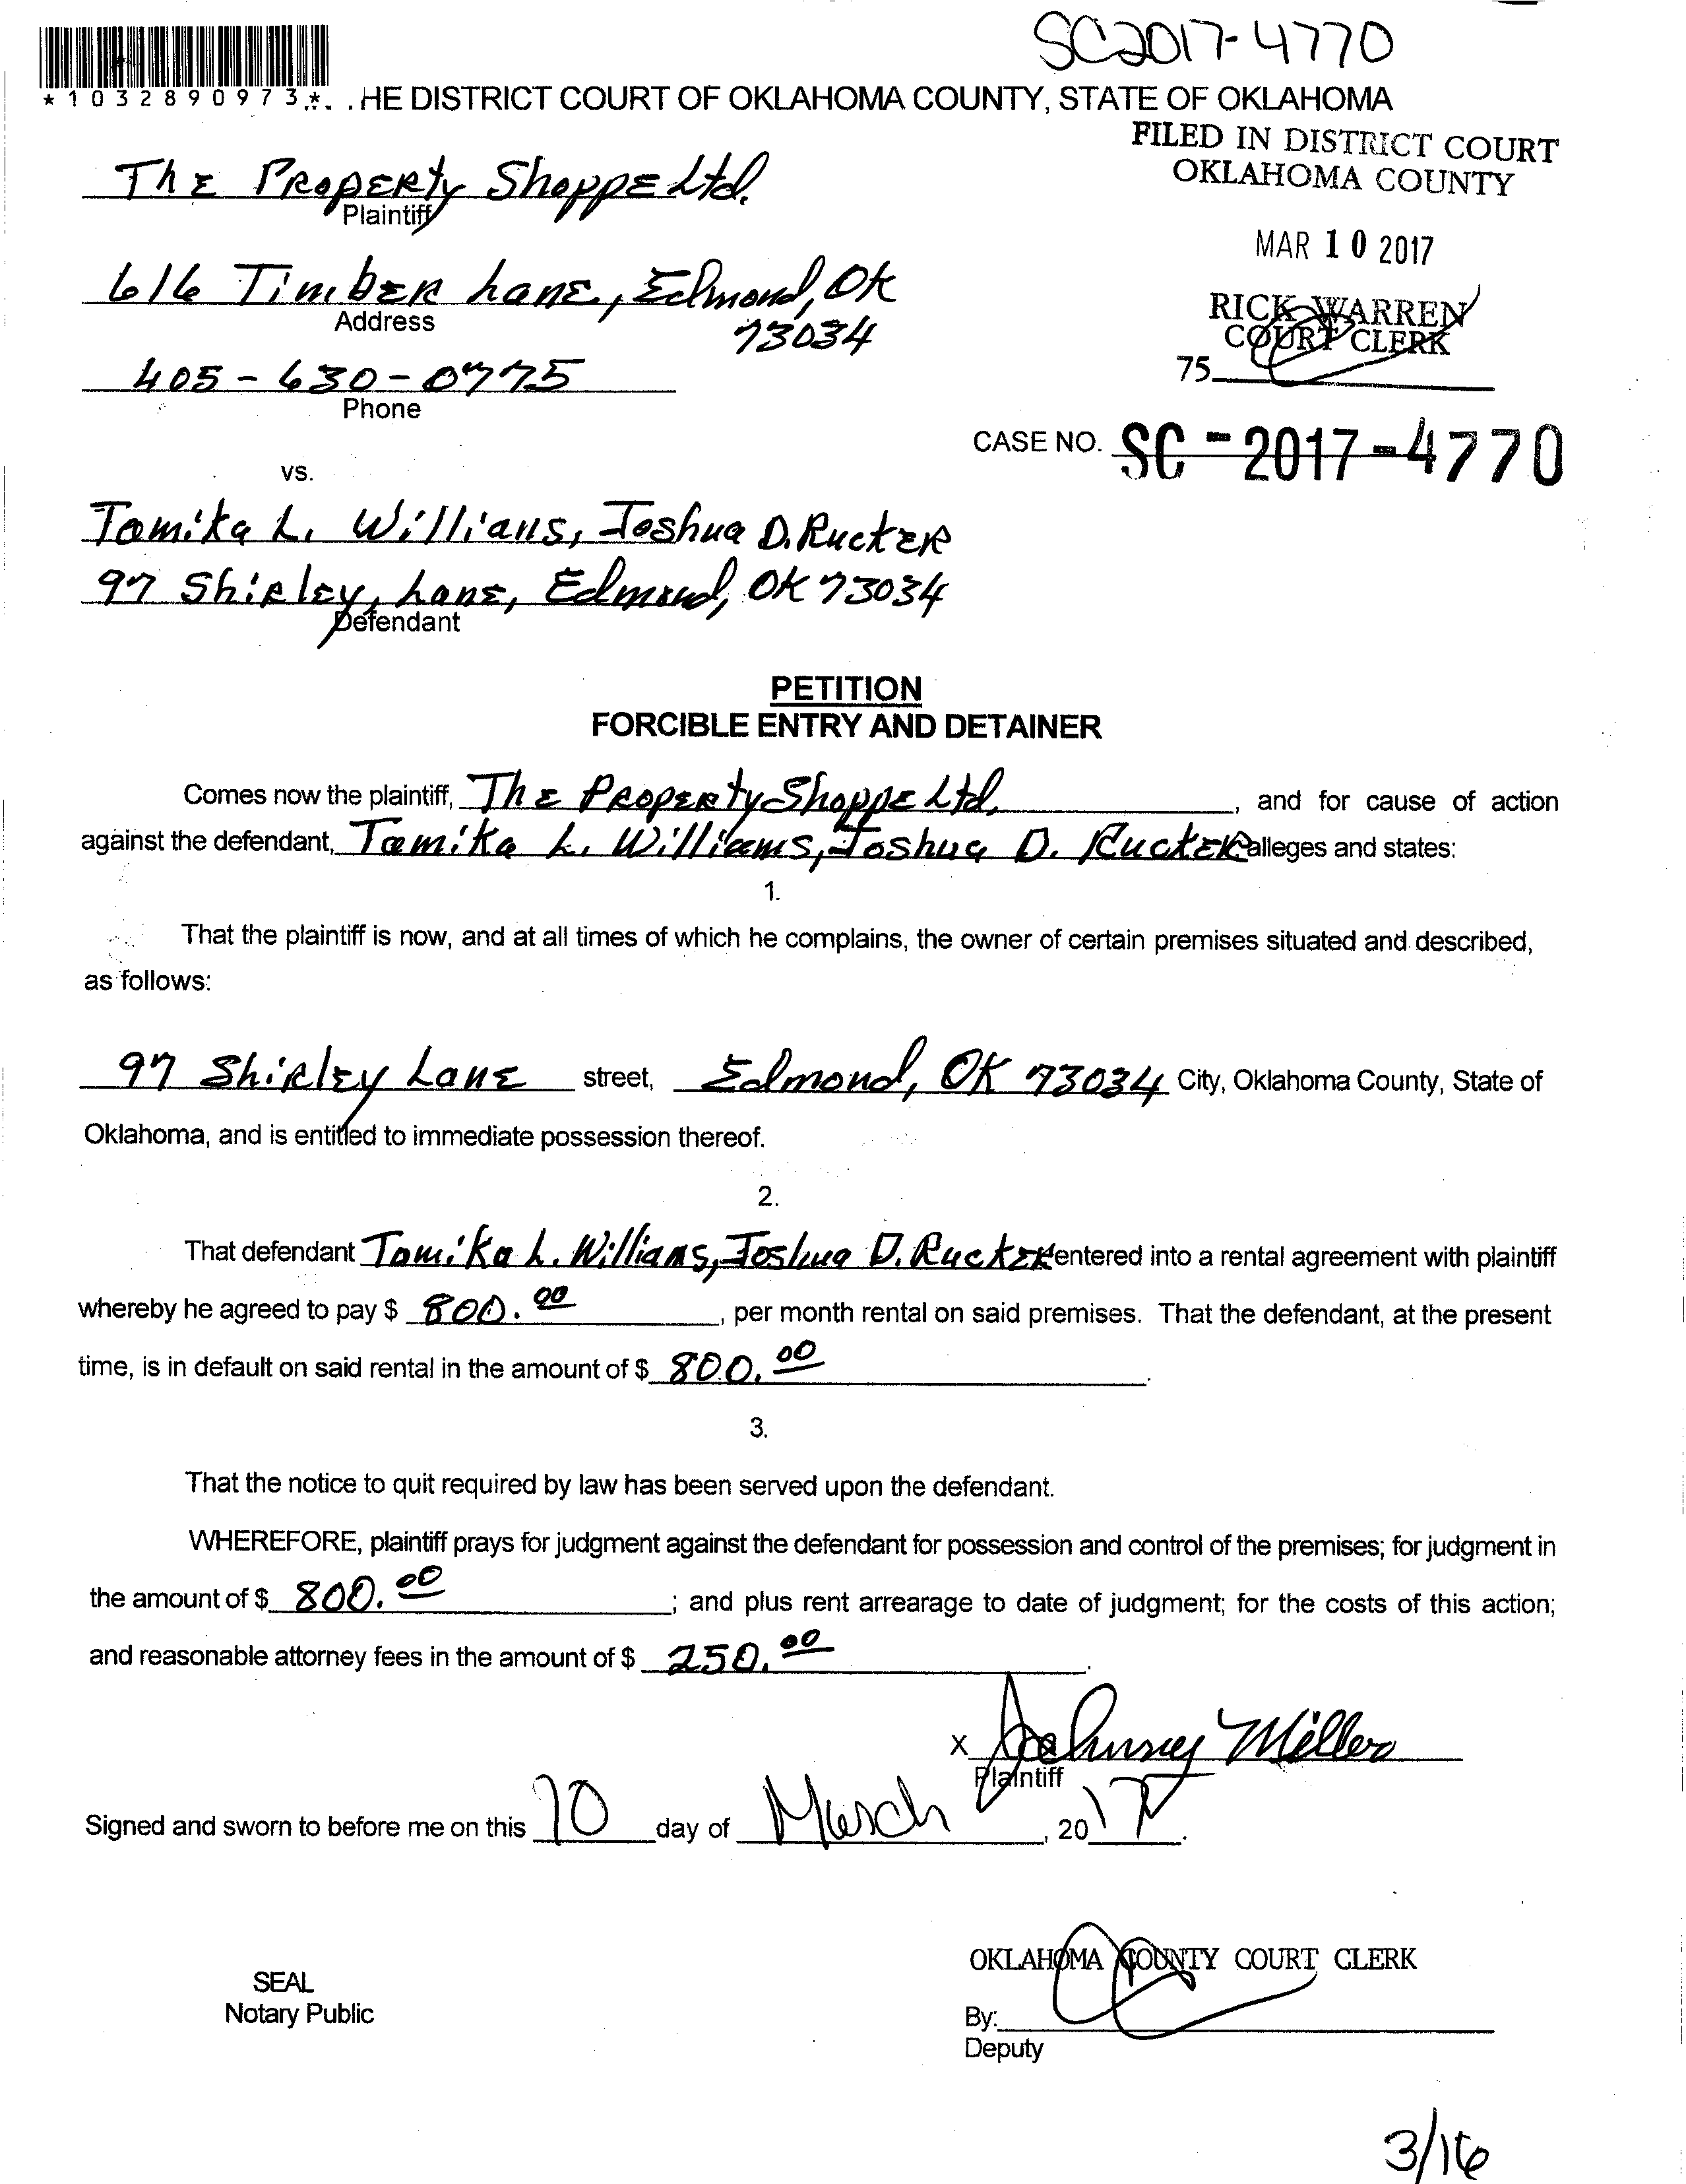 SC2017-4770
*1032890973*. .HE DISTRICT COURT OF OKLAHOMA COUNTY, STATE OF OKLAHOMA
FILED IN DISTRICT COURT
OKLAHOMA COUNTY
The Property Shoppe Ltd.
Plaintiff
MAR 10 2017
616 Timber Lane, Edmond, OK
Address
73034
RICK WARREN
COURT CLERK
75
405-630-0775
Phone
CASE NO. SC-2017-4770
vs.
Tomika L. Willians, Joshua D. Rucker
97 Shirley, Lane, Edmond, OK 73034
Defendant
PETITION
FORCIBLE ENTRY AND DETAINER
Comes now the plaintiff, The Property Shoppe Ltd., and for cause of action
against the defendant, Tomika L. Williams, Joshua D. Rucker alleges and states:
1.
That the plaintiff is now, and at all times of which he complains, the owner of certain premises situated and described,
as follows:
97 Shirley Lane street, Edmond, OK 73034 City, Oklahoma County, State of
Oklahoma, and is entitled to immediate possession thereof.
2.
That defendant Tomika L. Willians, Joshua D. Rucker entered into a rental agreement with plaintiff
whereby he agreed to pay $ 800.00, per month rental on said premises. That the defendant, at the present
time, is in default on said rental in the amount of $ 800.00.
3.
That the notice to quit required by law has been served upon the defendant.
WHEREFORE, plaintiff prays for judgment against the defendant for possession and control of the premises; for judgment in
the amount of $ 800.00; and plus rent arrearage to date of judgment; for the costs of this action;
and reasonable attorney fees in the amount of $ 250.00.
X Johnny Miller
Plaintiff
Signed and sworn to before me on this 10 day of March, 2017.
OKLAHOMA COUNTY COURT CLERK
SEAL
Notary Public
By:
Deputy
3/16